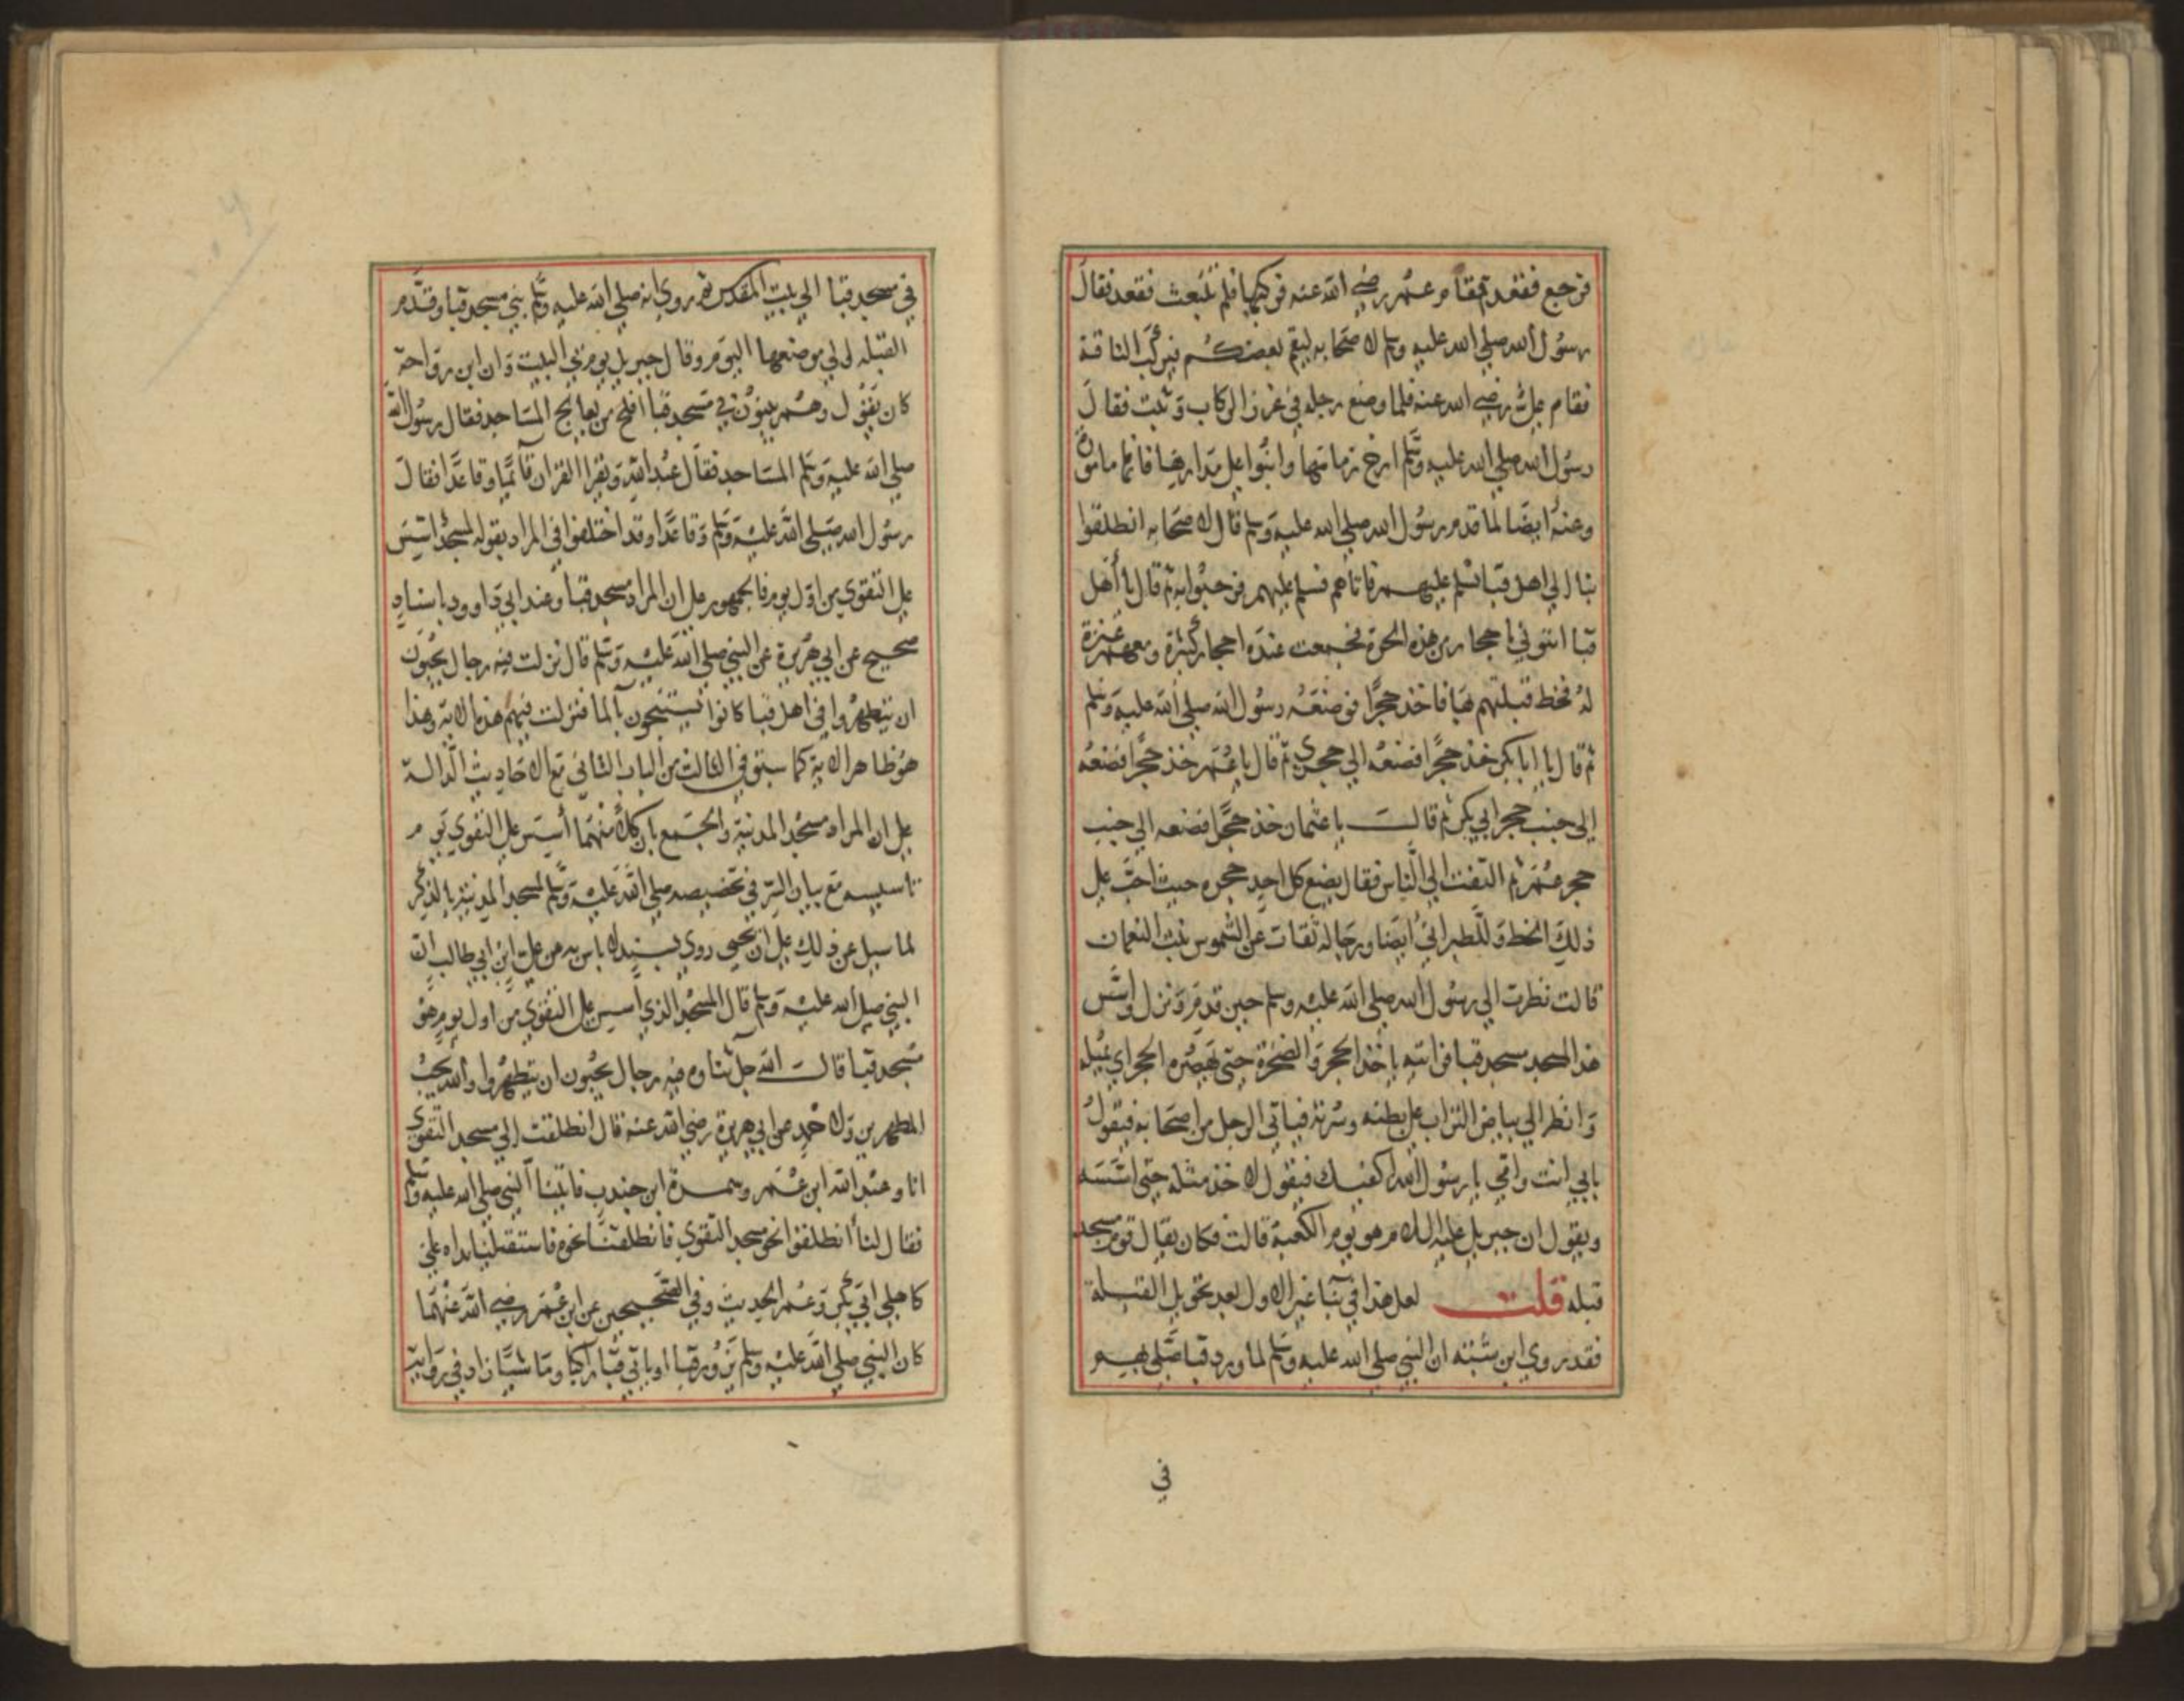 فرجع فقعد فقام عمر رضي الله عنه فركبها فلم تنبعث فقعد فقال
رسول الله صلي الله عليه وسلم لاصحابه ليقم بعضكم فيركب الناقة
فقام علي رضي الله عنه فلما وضع رجله في غرز الركاب وثبت فقال
رسول الله صلي الله عليه وسلم ارخ زمامها وابنوا علي مدارها فانها مامورة
وعنه ايضا لما قدم رسول الله صلي الله عليه وسلم قال لاصحابه انطلقوا
بنا الي اهل قبا نسلم عليهم فاتاهم فسلم عليهم فرحبوا به ثم قال يا أهل
قبا ائتوني باحجار من هذه الحرة فجمعت عنده احجار كثيرة ومعه عنزة
له فخط قبلتهم بها فاخذ حجرا فوضعه رسول الله صلي الله عليه وسلم
ثم قال يا ابا بكر خذ حجرا فضعه الي حجري ثم قال يا عمر خذ حجرا فضعه
الي جنب حجر ابي بكر ثم قال يا عثمان خذ حجرا فضعه الي جنب
حجر عمر ثم التفت الي الناس فقال يضع كل احد حجره حيث احب علي
ذلك الخط وللطبراني أيضا ورجاله ثقات عن الشموس بنت النعمان
قالت نظرت الي رسول الله صلي الله عليه وسلم حين قدم ونزل واسس
هذا المسجد مسجد قبا فرايته ياخذ الحجر والصخرة حتي يهصره الحجر اي يميله
وانظر الي بياض التراب علي بطنه وسرته فياتي الرجل من اصحابه فيقول
بابي انت وامي يا رسول الله اكفيك فيقول لا خذ مثله حتي اسسه
ويقول ان جبريل عليه السلام هو يوم الكعبة قالت فكان يقال قوم مسجد
قبله قلت لعل هذا في بنا غير الاول بعد تحويل القبلة
فقد روي ابن شبته ان النبي صلي الله عليه وسلم لما ورد قبا صلي بهم
في
في مسجد قبا الي بيت المقدس ثم روي انه صلي الله عليه وسلم بني مسجد قبا وقدم
القبله الي موضعها اليوم وقال جبريل يوم بي البيت وان ابن رواحة
كان يقول وهم يبنون في مسجد قبا أفلح من يعالج المساجد فقال رسول الله
صلي الله عليه وسلم المساجد فقال عبد الله ويقرا القران قائما وقاعدا فقال
رسول الله صلي الله عليه وسلم وقاعدا وقد اختلفوا في المراد بقوله لمسجد اسس
علي التقوي من اول يوم فالجمهور علي ان المراد مسجد قبا وعند ابي داوود باسناد
صحيح عن ابي هريرة عن النبي صلي الله عليه وسلم قال نزلت فيه رجال يحبون
ان يتطهروا في اهل قبا كانوا يستنجون بالما فنزلت فيهم هذه الاية وهذا
هو ظاهر الاية كما سبق في الثالث من الباب الثاني مع الاحاديث الدالة
علي ان المراد مسجد المدنية والجمع بان كلا منهما أسس علي التقوي يوم
تاسيسه مع بيان السر في تخصيصه صلي الله عليه وسلم لمسجد المدنية بالذكر
لما سيل عن ذلك علي ان يحيي روي بسند لا باس به عن علي ابن ابي طالب ان
النبي صلي الله عليه وسلم قال المسجد الذي أسس علي التقوي من اول يوم هو
مسجد قبا قال الله جل ثناوه فيه رجال يحبون ان يتطهروا والله يحب
المطهرين ولاحمد عن ابي هريرة رضي الله عنه قال انطلقت الي مسجد التقوي
انا وعبد الله ابن عمر وسمرة ابن جندب فاتينا النبي صلي الله عليه وسلم
فقال لنا انطلقوا نحو مسجد التقوي فانطلقنا نحوه فاستقبلنا يداه علي
كاهلي ابي بكر وعمر الحديث وفي الصحيحين عن ابن عمر رضي الله عنهما
كان النبي صلي الله عليه وسلم يزور قبا او ياتي قبا راكبا وماشيا زاد في رواية